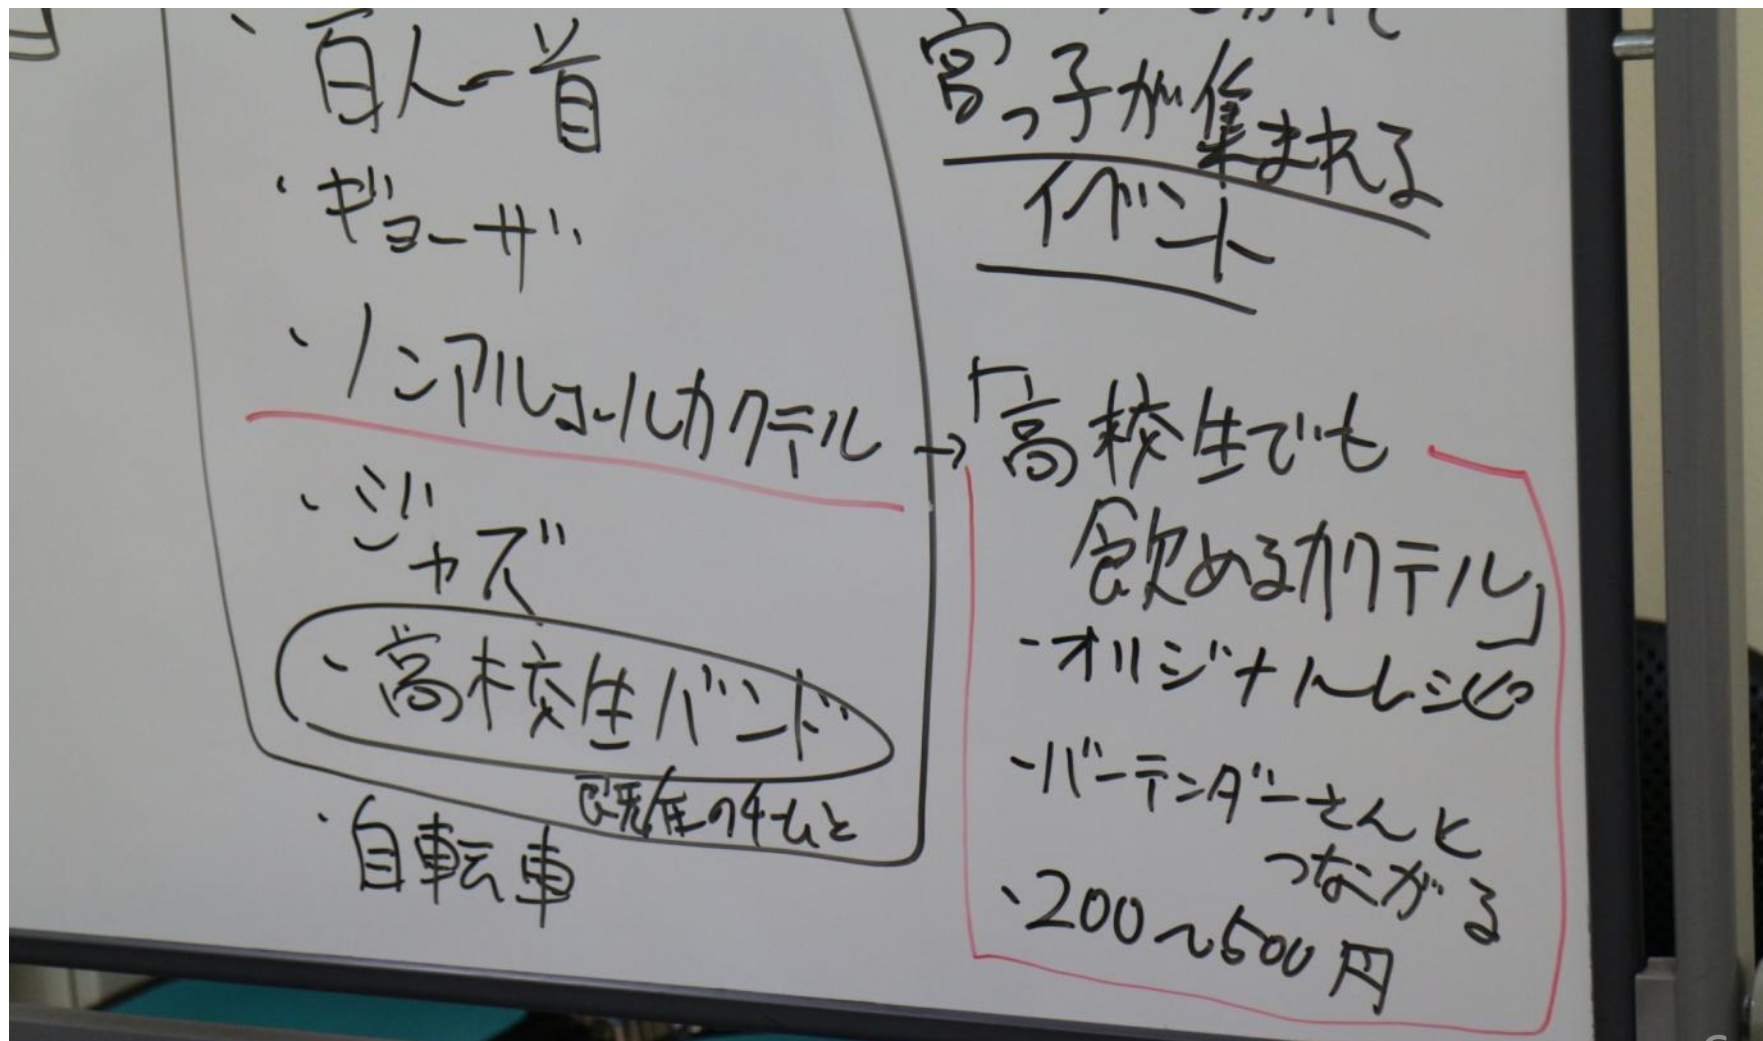 ・百人一首
・ギョーザ
・ノンアルコールカクテル
・ジャズ
・高校生バンド
既存のチームと
・自転車
宮っ子が集まれる
イベント
→「高校生でも
飲めるカクテル」
-オリジナルレシピ
-バーテンダーさんと
つながる
・200〜500円